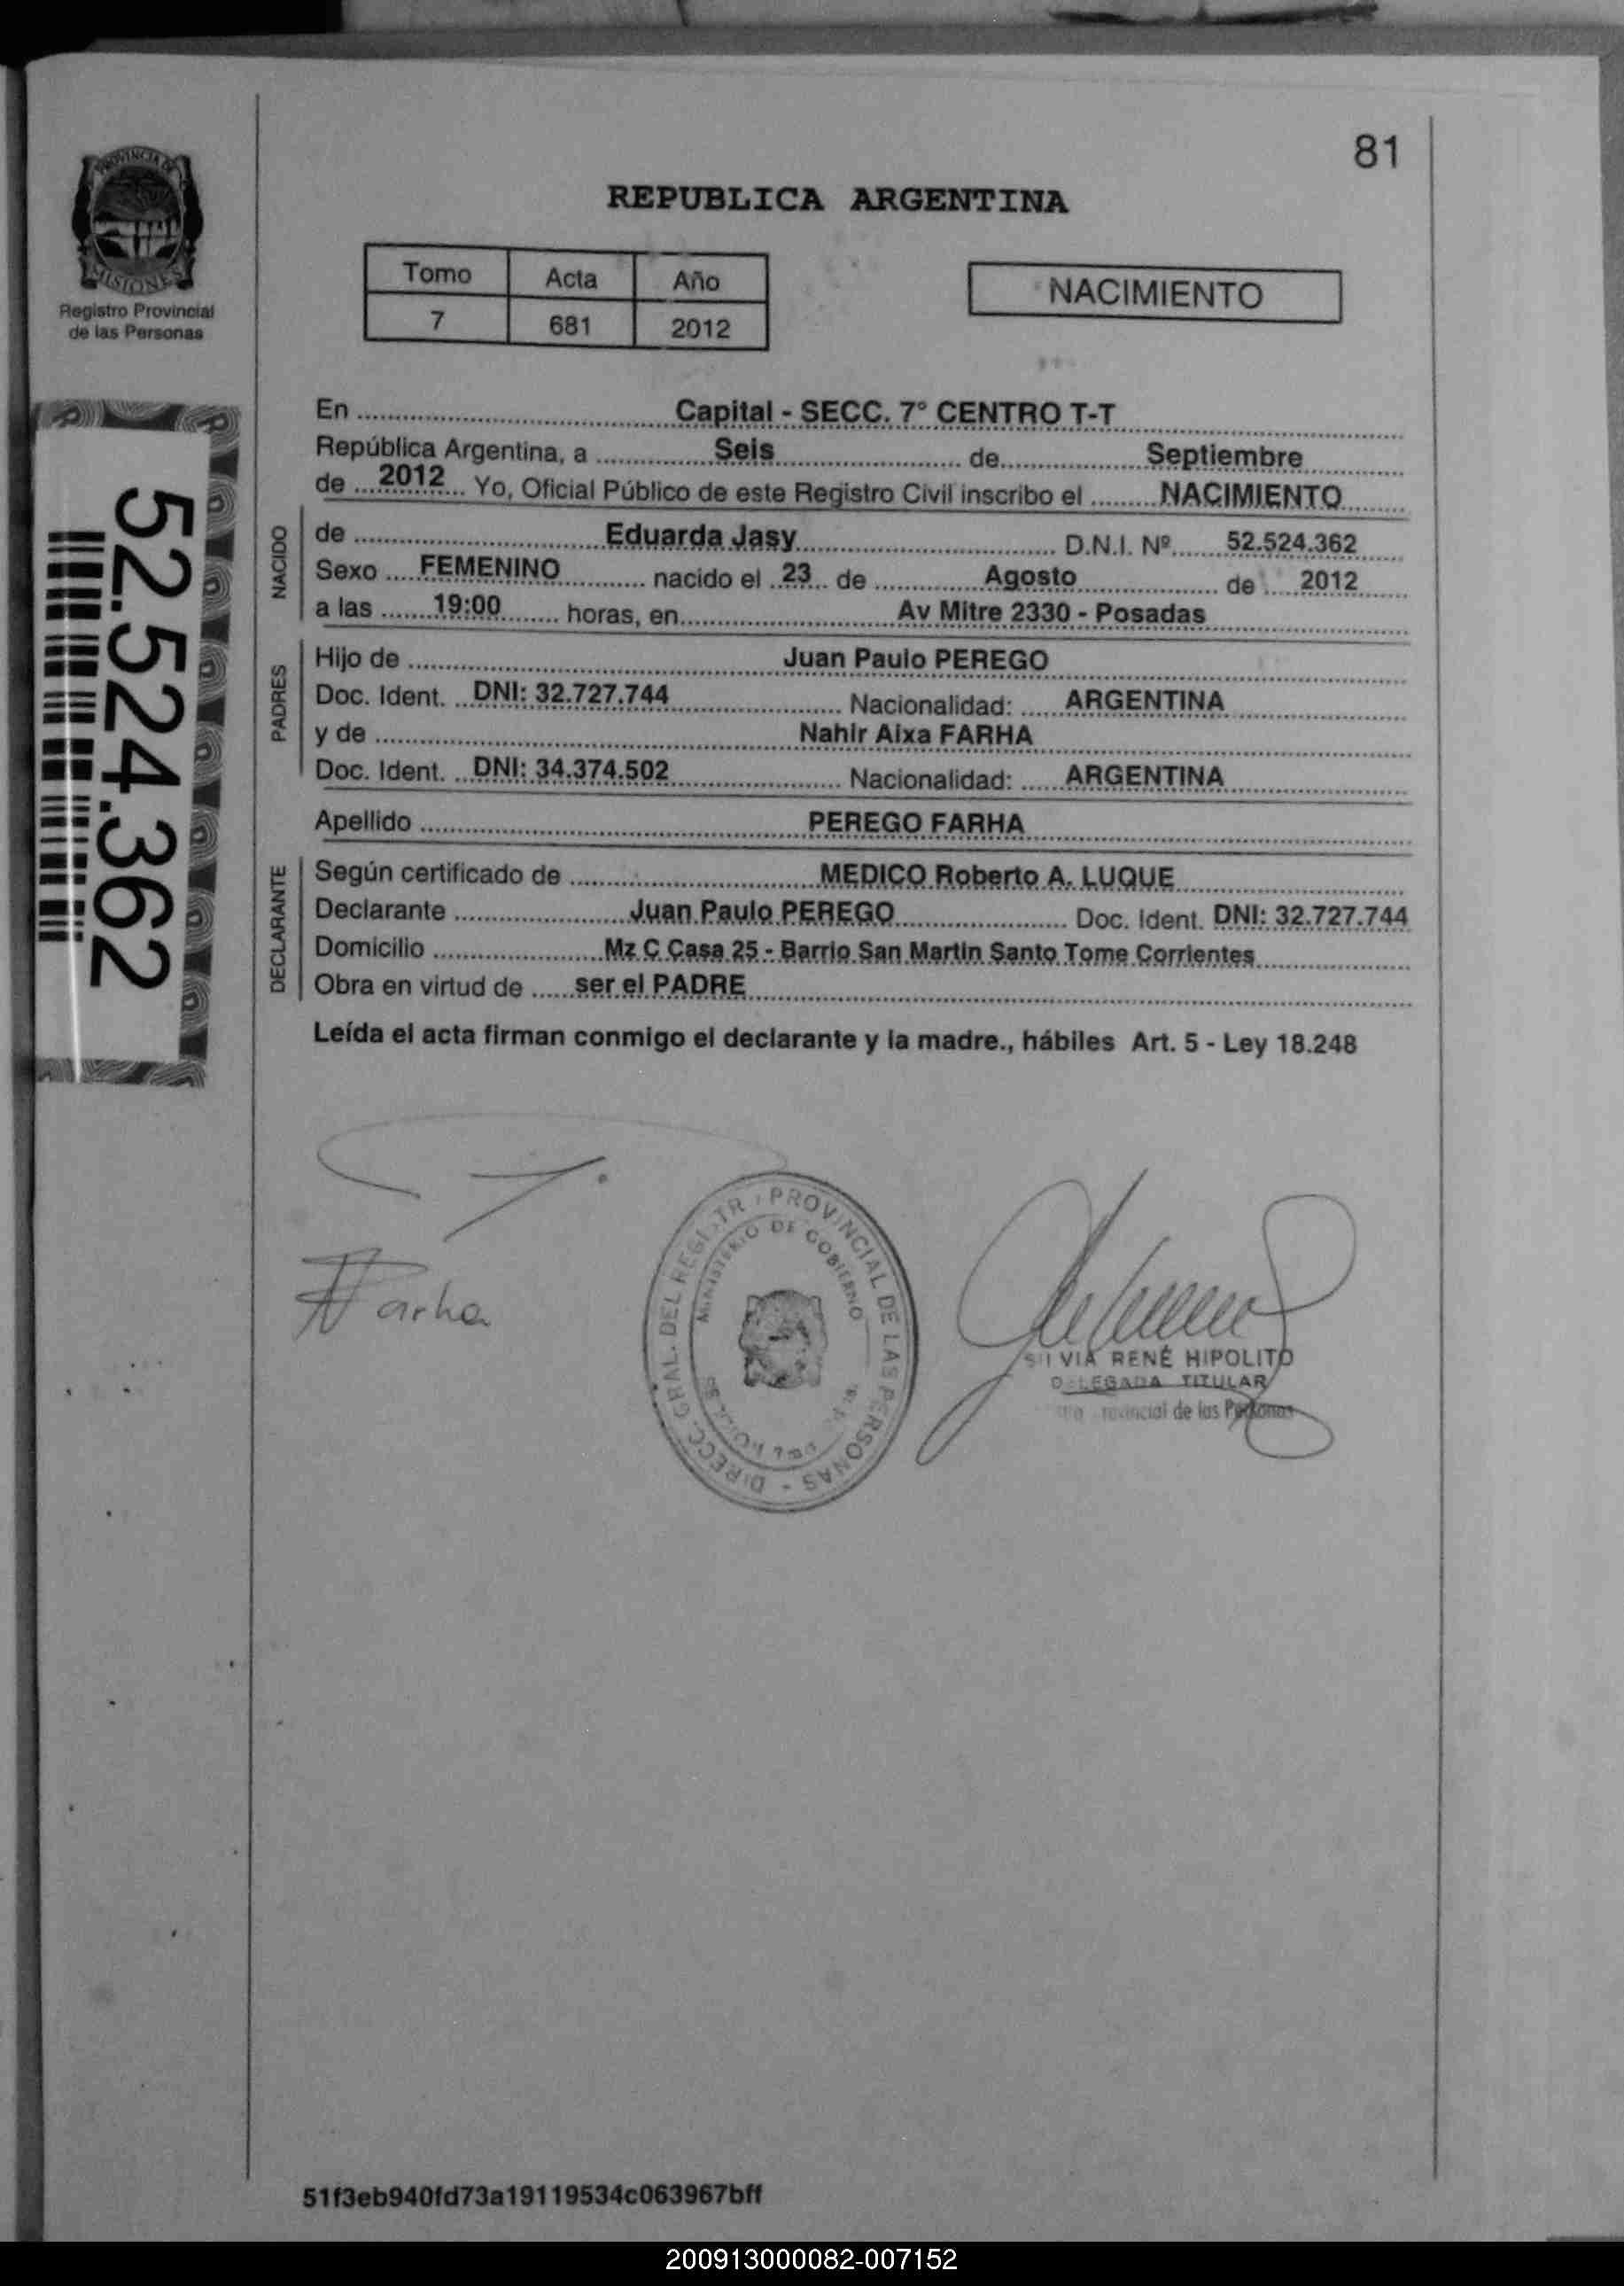 81
PROVINCIA DE
MISIONES
Registro Provincial
de las Personas
REPUBLICA ARGENTINA
Tomo Acta Año
7 681 2012
NACIMIENTO
52.524.362
En Capital - SECC. 7° CENTRO T-T
República Argentina, a Seis de Septiembre
de 2012 Yo, Oficial Público de este Registro Civil inscribo el NACIMIENTO
NACIDO
de Eduarda Jasy D.N.I. Nº 52.524.362
Sexo FEMENINO nacido el 23 de Agosto de 2012
a las 19:00 horas, en Av Mitre 2330 - Posadas
PADRES
Hijo de Juan Paulo PEREGO
Doc. Ident. DNI: 32.727.744 Nacionalidad: ARGENTINA
y de Nahir Aixa FARHA
Doc. Ident. DNI: 34.374.502 Nacionalidad: ARGENTINA
Apellido PEREGO FARHA
DECLARANTE
Según certificado de MEDICO Roberto A. LUQUE
Declarante Juan Paulo PEREGO Doc. Ident. DNI: 32.727.744
Domicilio Mz C Casa 25 - Barrio San Martin Santo Tome Corrientes
Obra en virtud de ser el PADRE
Leída el acta firman conmigo el declarante y la madre., hábiles Art. 5 - Ley 18.248
Farha
DIRECC. GRAL. DEL REGISTR PROVINCIAL DE LAS PERSONAS -
MINISTERIO DE GOBIERNO
SILVIA RENÉ HIPOLITO
DELEGADA TITULAR
de las Personas
51f3eb940fd73a19119534c063967bff
200913000082-007152